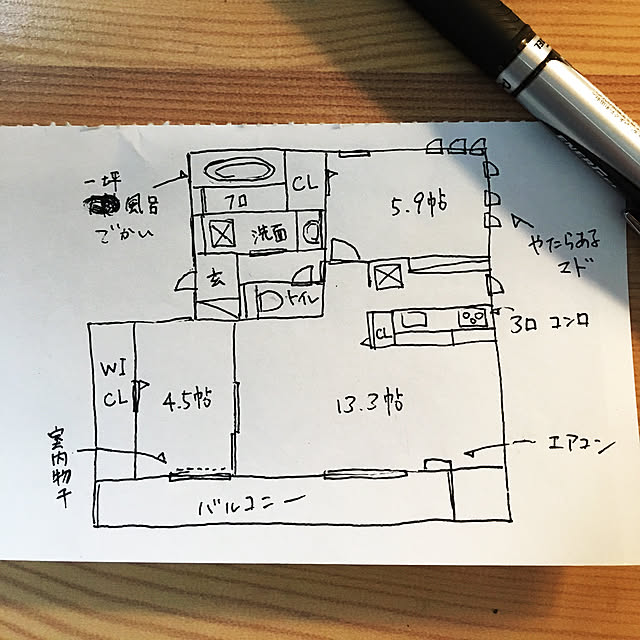 一坪
風呂
でかい
フロ
CL
5.9帖
洗面
玄
トイレ
やたらある
マド
3口 コンロ
CL
WI
CL
4.5帖
13.3帖
室内物干
エアコン
バルコニー